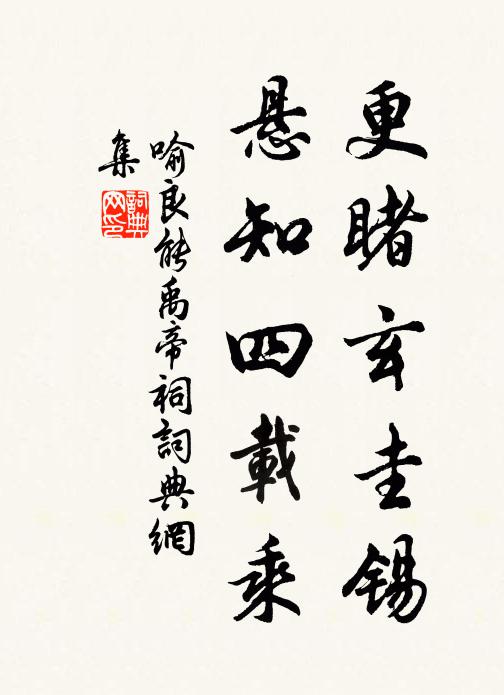 更睹玄圭錫
悬知四載乘
喻良能禹帝祠詞典網
集
詞典
网印